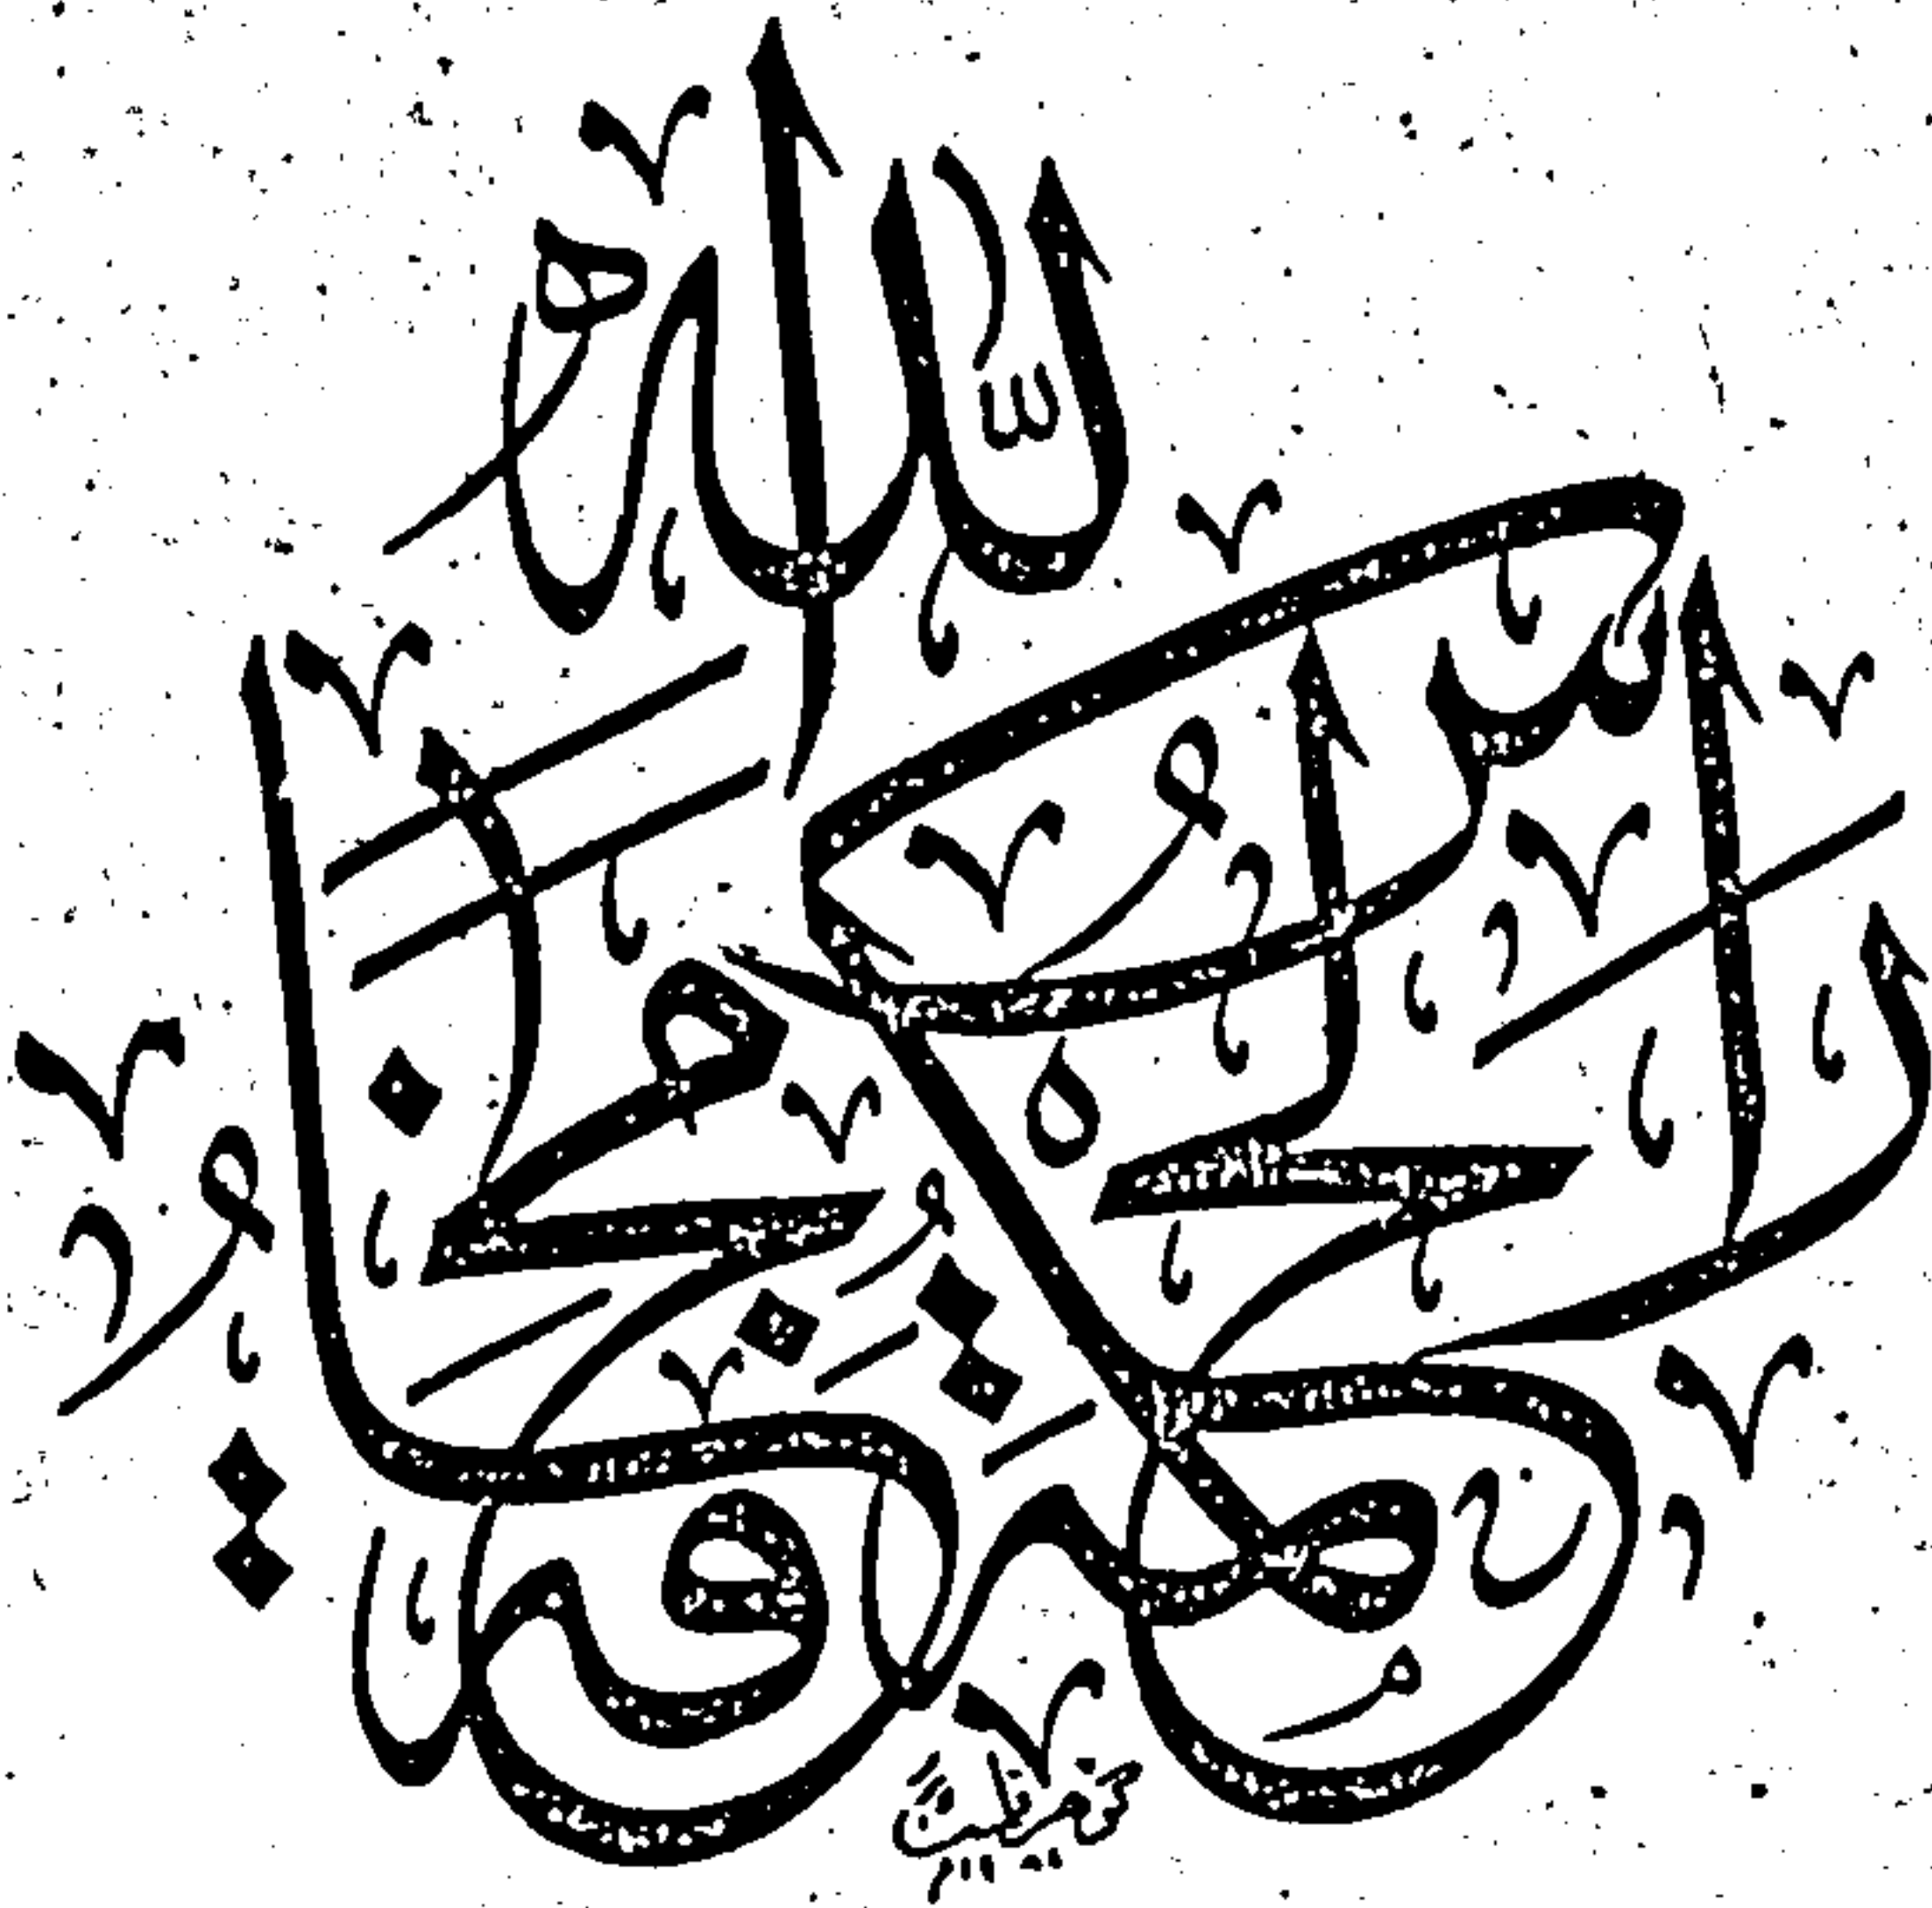 رأس الحكمة مخافة الله